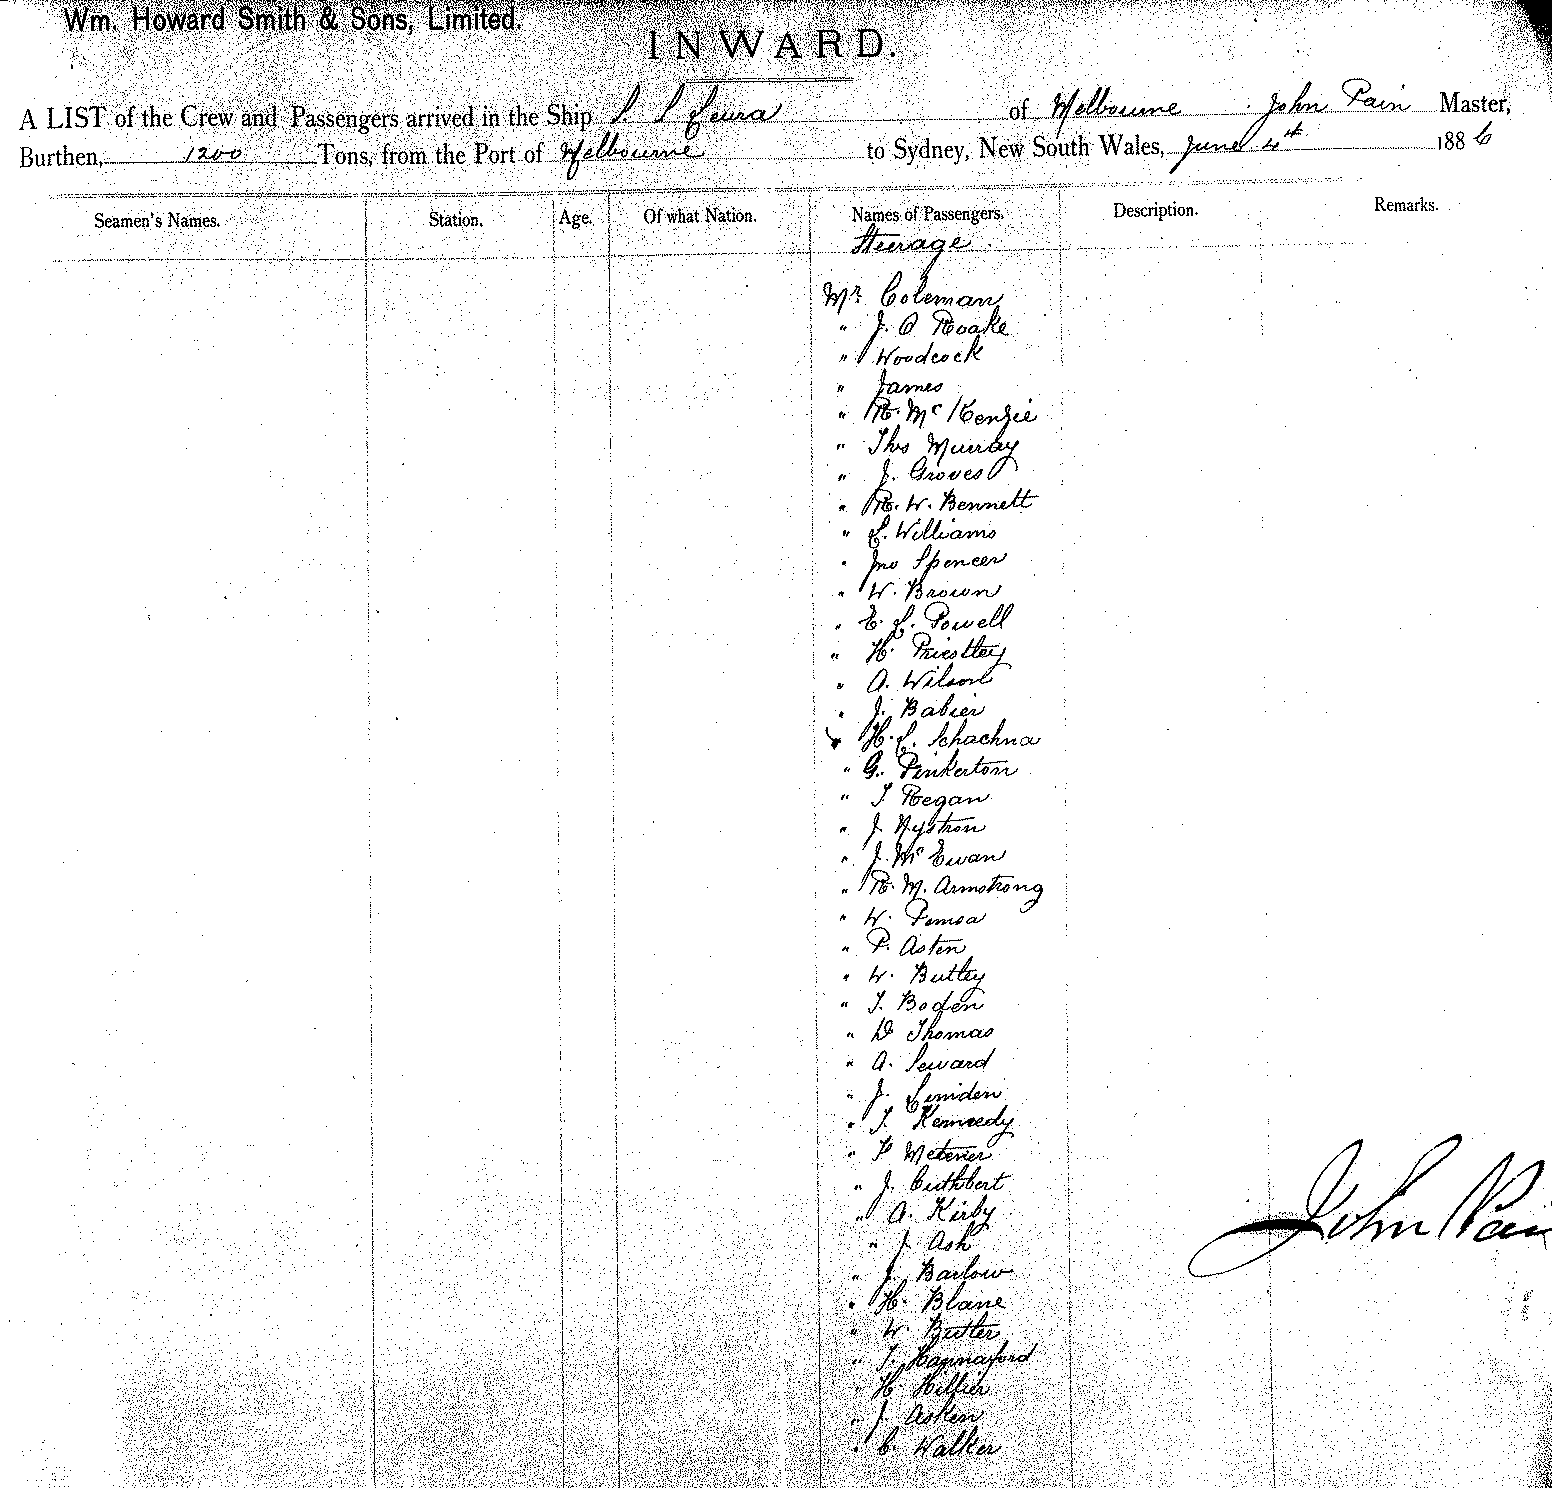 Wm. Howard Smith & Sons, Limited.
INWARD.
A LIST of the Crew and Passengers arrived in the Ship S S Leura of Melbourne John Pain Master,
Burthen, 1200 Tons, from the Port of Melbourne to Sydney, New South Wales, June 4th 1886
Seamen's Names. Station. Age. Of what Nation. Names of Passengers. Description. Remarks.
Steerage
Mr. Coleman
" J. O Roake
" Woodcock
" James
" R. Mc Kenzie
" Thos Murray
" J. Groves
" R. W. Bennett
" L. Williams
" Jno Spencer
" W. Brown
" E. L. Powell
" H. Priestley
" A. Wilson
" J. Babier
" H. L. Schachna
" G. Pinkerton
" T. Regan
" J. Nystron
" J. Mc Ewan
" R. M. Armstrong
" W.
" P. Asten
" W. Buttey
" T. Boden
" D Thomas
" A. Seward
" J.
" T. Kennedy
" Metener
" J. Cuthbert
" A. Kirby
" J. Ash
" J. Barlow
" H. Blane
" W. Butler
" T. Hannaford
" H. Hillier
" J. Asken
" C. Walker
John Pain